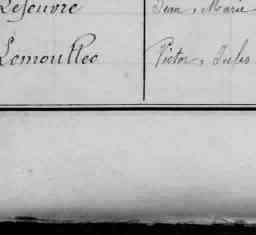 Lefeuvre Jean, Marie
Lemoullec Victor, Jules